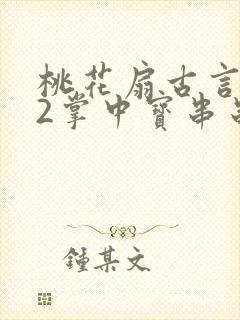 桃花扇古言
2掌中寶串
鍾某文